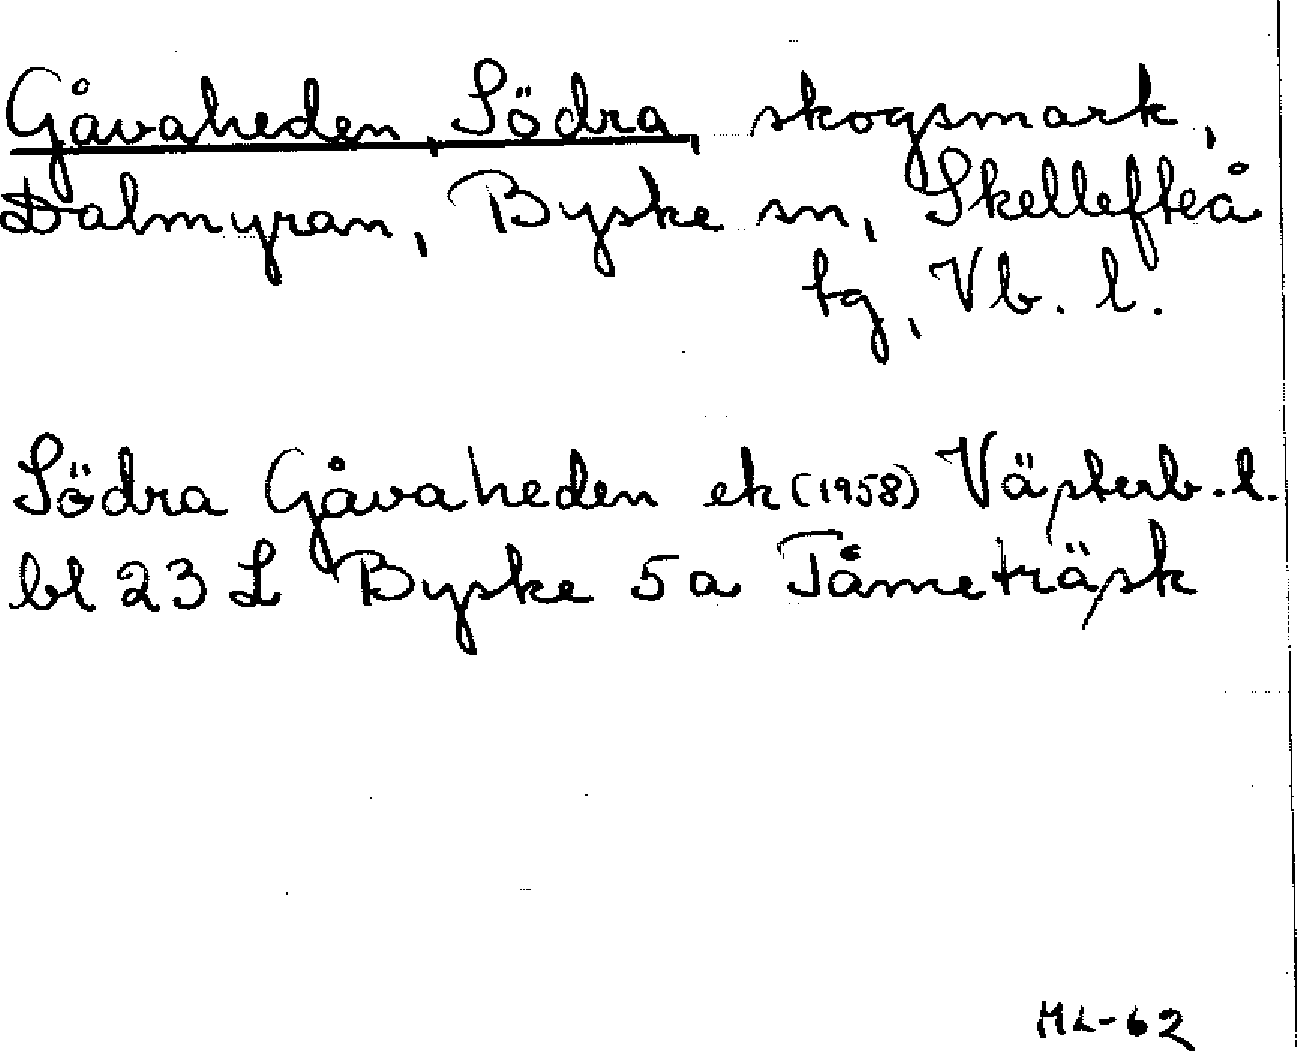 Gåvaheden, Södra, skogsmark,
Dalmyran, Byske sn, Skellefteå
tg, Vb. l.
Södra Gåvaheden ek (1958) Västerb. l.
bl 23 L Byske 5a Tåmeträsk
ML-62